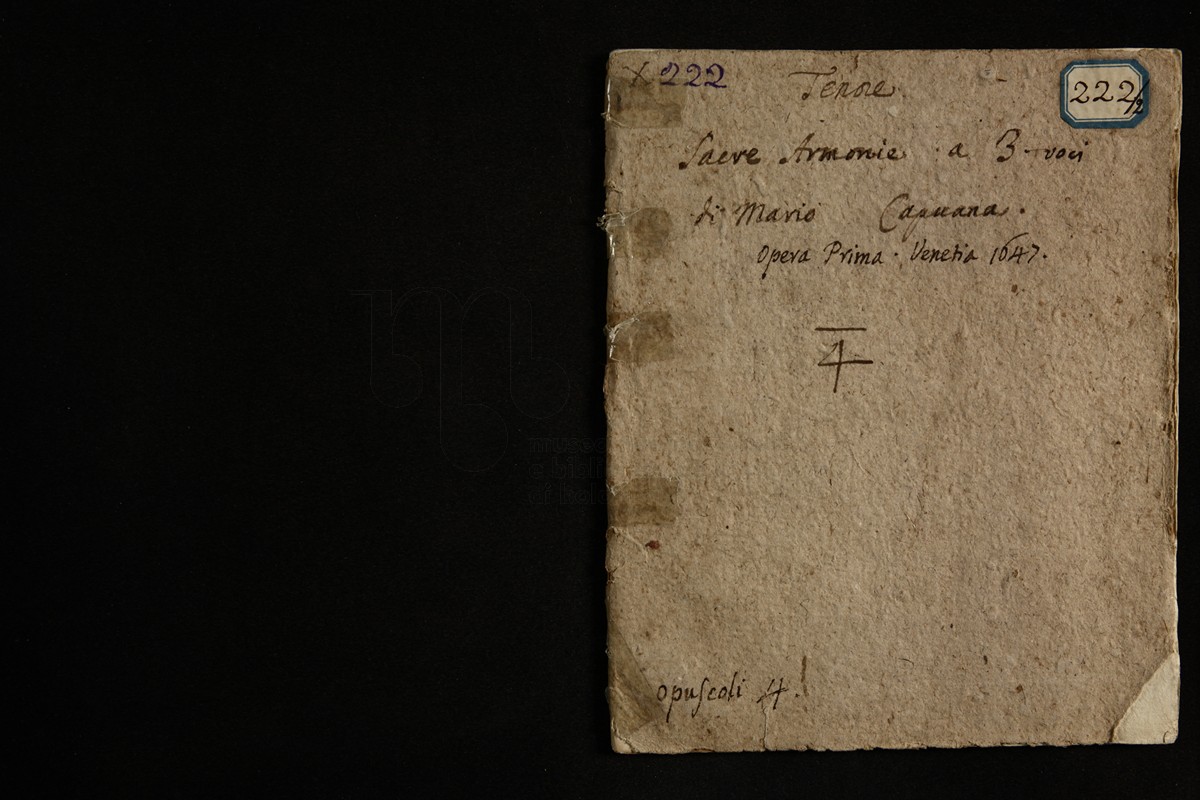 X 222
Tenore
222/2
Sacre Armonie a 3 voci
di Mario Capuana.
Opera Prima. Venetia 1647.
4
opuscoli 4.